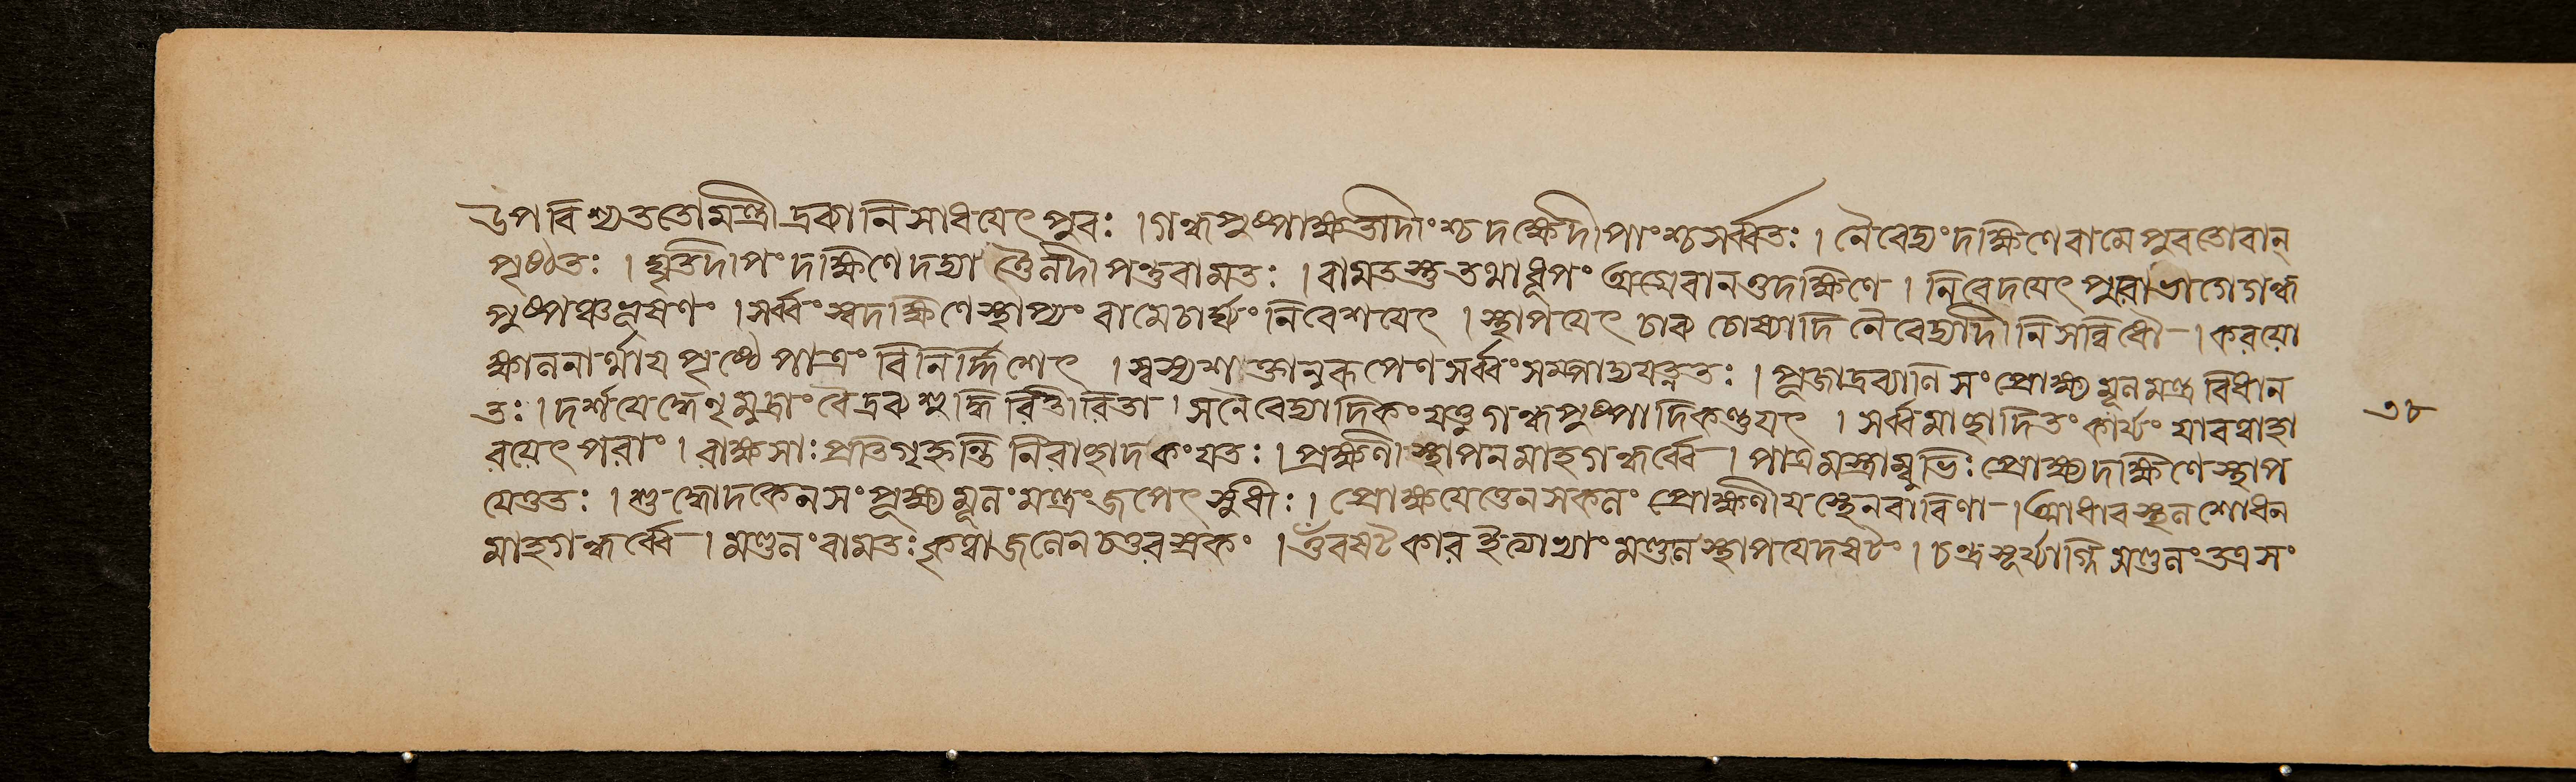 উপবিশ্য ততো মন্ত্রী দ্রব্যানি সাধয়েৎ পুরঃ । গন্ধপুষ্পাক্ষতাদীংশ্চ দক্ষে দীপাংশ্চ সর্ব্বতঃ । নৈবেদ্যং দক্ষিণে বামে পুরতো বান
পৃষ্ঠতঃ । ঘৃতদীপং দক্ষিণে দদ্যা ত্তৈলদীপন্তু বামতঃ । বামতস্তু তথা ধূপং অগ্রে বা নতু দক্ষিণে । নিবেদয়েৎ পুরোভাগে গন্ধ
পুষ্পঞ্চ ভূষণং । সর্ব্বং স্বদক্ষিণে স্থাপ্যং বামে চার্ঘ্যং নিবেশয়েৎ । স্থাপয়েৎ চোষ্যাদি নৈবেদ্যাদীনি সন্নিধৌ । করয়ো
ক্ষালনার্থায় পৃষ্ঠে পাত্রং বিনির্দ্দিশেৎ । স্বস্বশক্ত্যানুরূপেণ সর্ব্বং সম্পাদ্য যত্নতঃ । পূজাদ্রব্যাণি সংপ্রোক্ষ্য মূলমন্ত্র বিধান
তঃ । দর্শয়েদ্ধেনুমুদ্রাং বৈ দ্রব্যশুদ্ধি রিতীরিতা । সনৈবেদ্যাদিকং যত্তু গন্ধপুষ্পাদিকন্তু যৎ । সর্ব্বমাচ্ছাদিতং কার্য্যং যাবদ্বাহা
রয়েৎ পরাং । রাক্ষসাঃ প্রতিগৃহ্নন্তি নিরাচ্ছাদকং যতঃ । প্রক্ষণী স্থাপনমাহ গন্ধর্ব্বে । পাত্রমস্ত্রাম্বুভিঃ প্রোক্ষ্য দক্ষিণে স্থাপ
য়েত্ততঃ । শুদ্ধোদকেন সংপূর্য্য মূলং মন্ত্রং জপেৎ সুধীঃ । প্রোক্ষয়েত্তেন সকলং প্রোক্ষণীয়স্থেন বারিণা । আধারস্থল শোধন
মাহ গন্ধর্ব্বে । মণ্ডলং বামতঃ কৃত্বা জলেন চতুরস্রকং । মণ্ডল স্থাপয়েদ । চন্দ্রসূর্য্যাগ্নিমণ্ডলং তত্র সং
৩৮